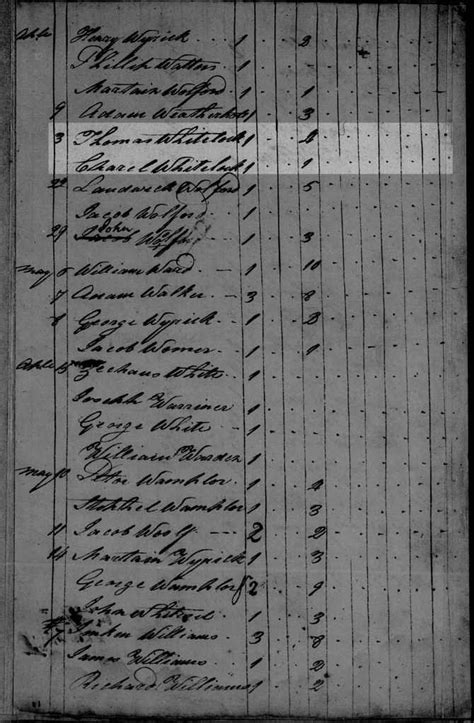 Henry Wyrick 1 2
Phillip Walters 1
Martain Wolford 1 1
9 Adam 1 3
3 Thomas Whitelock 1
Charel Whitelock 1 1
22 Wolford 1 5
Jacob Wolford 1
29 John Wolford 1 3
May 6 William Ward 1 10
7 Adam Walker 3 8
8 George Wyrick 1 2
Jacob 1 1
15 White 1
Joseph Warriner 1
George White 1
William Warden 1
May 10 Peter Wamblor 1 2
Wamblor 1 3
11 Jacob Woolf 2 2
14 Martain Wyrick 1 3
George Wamblor 2 9
John 1 3
17 Williams 3 8
James Williams 1 2
Richard Williams 1 2